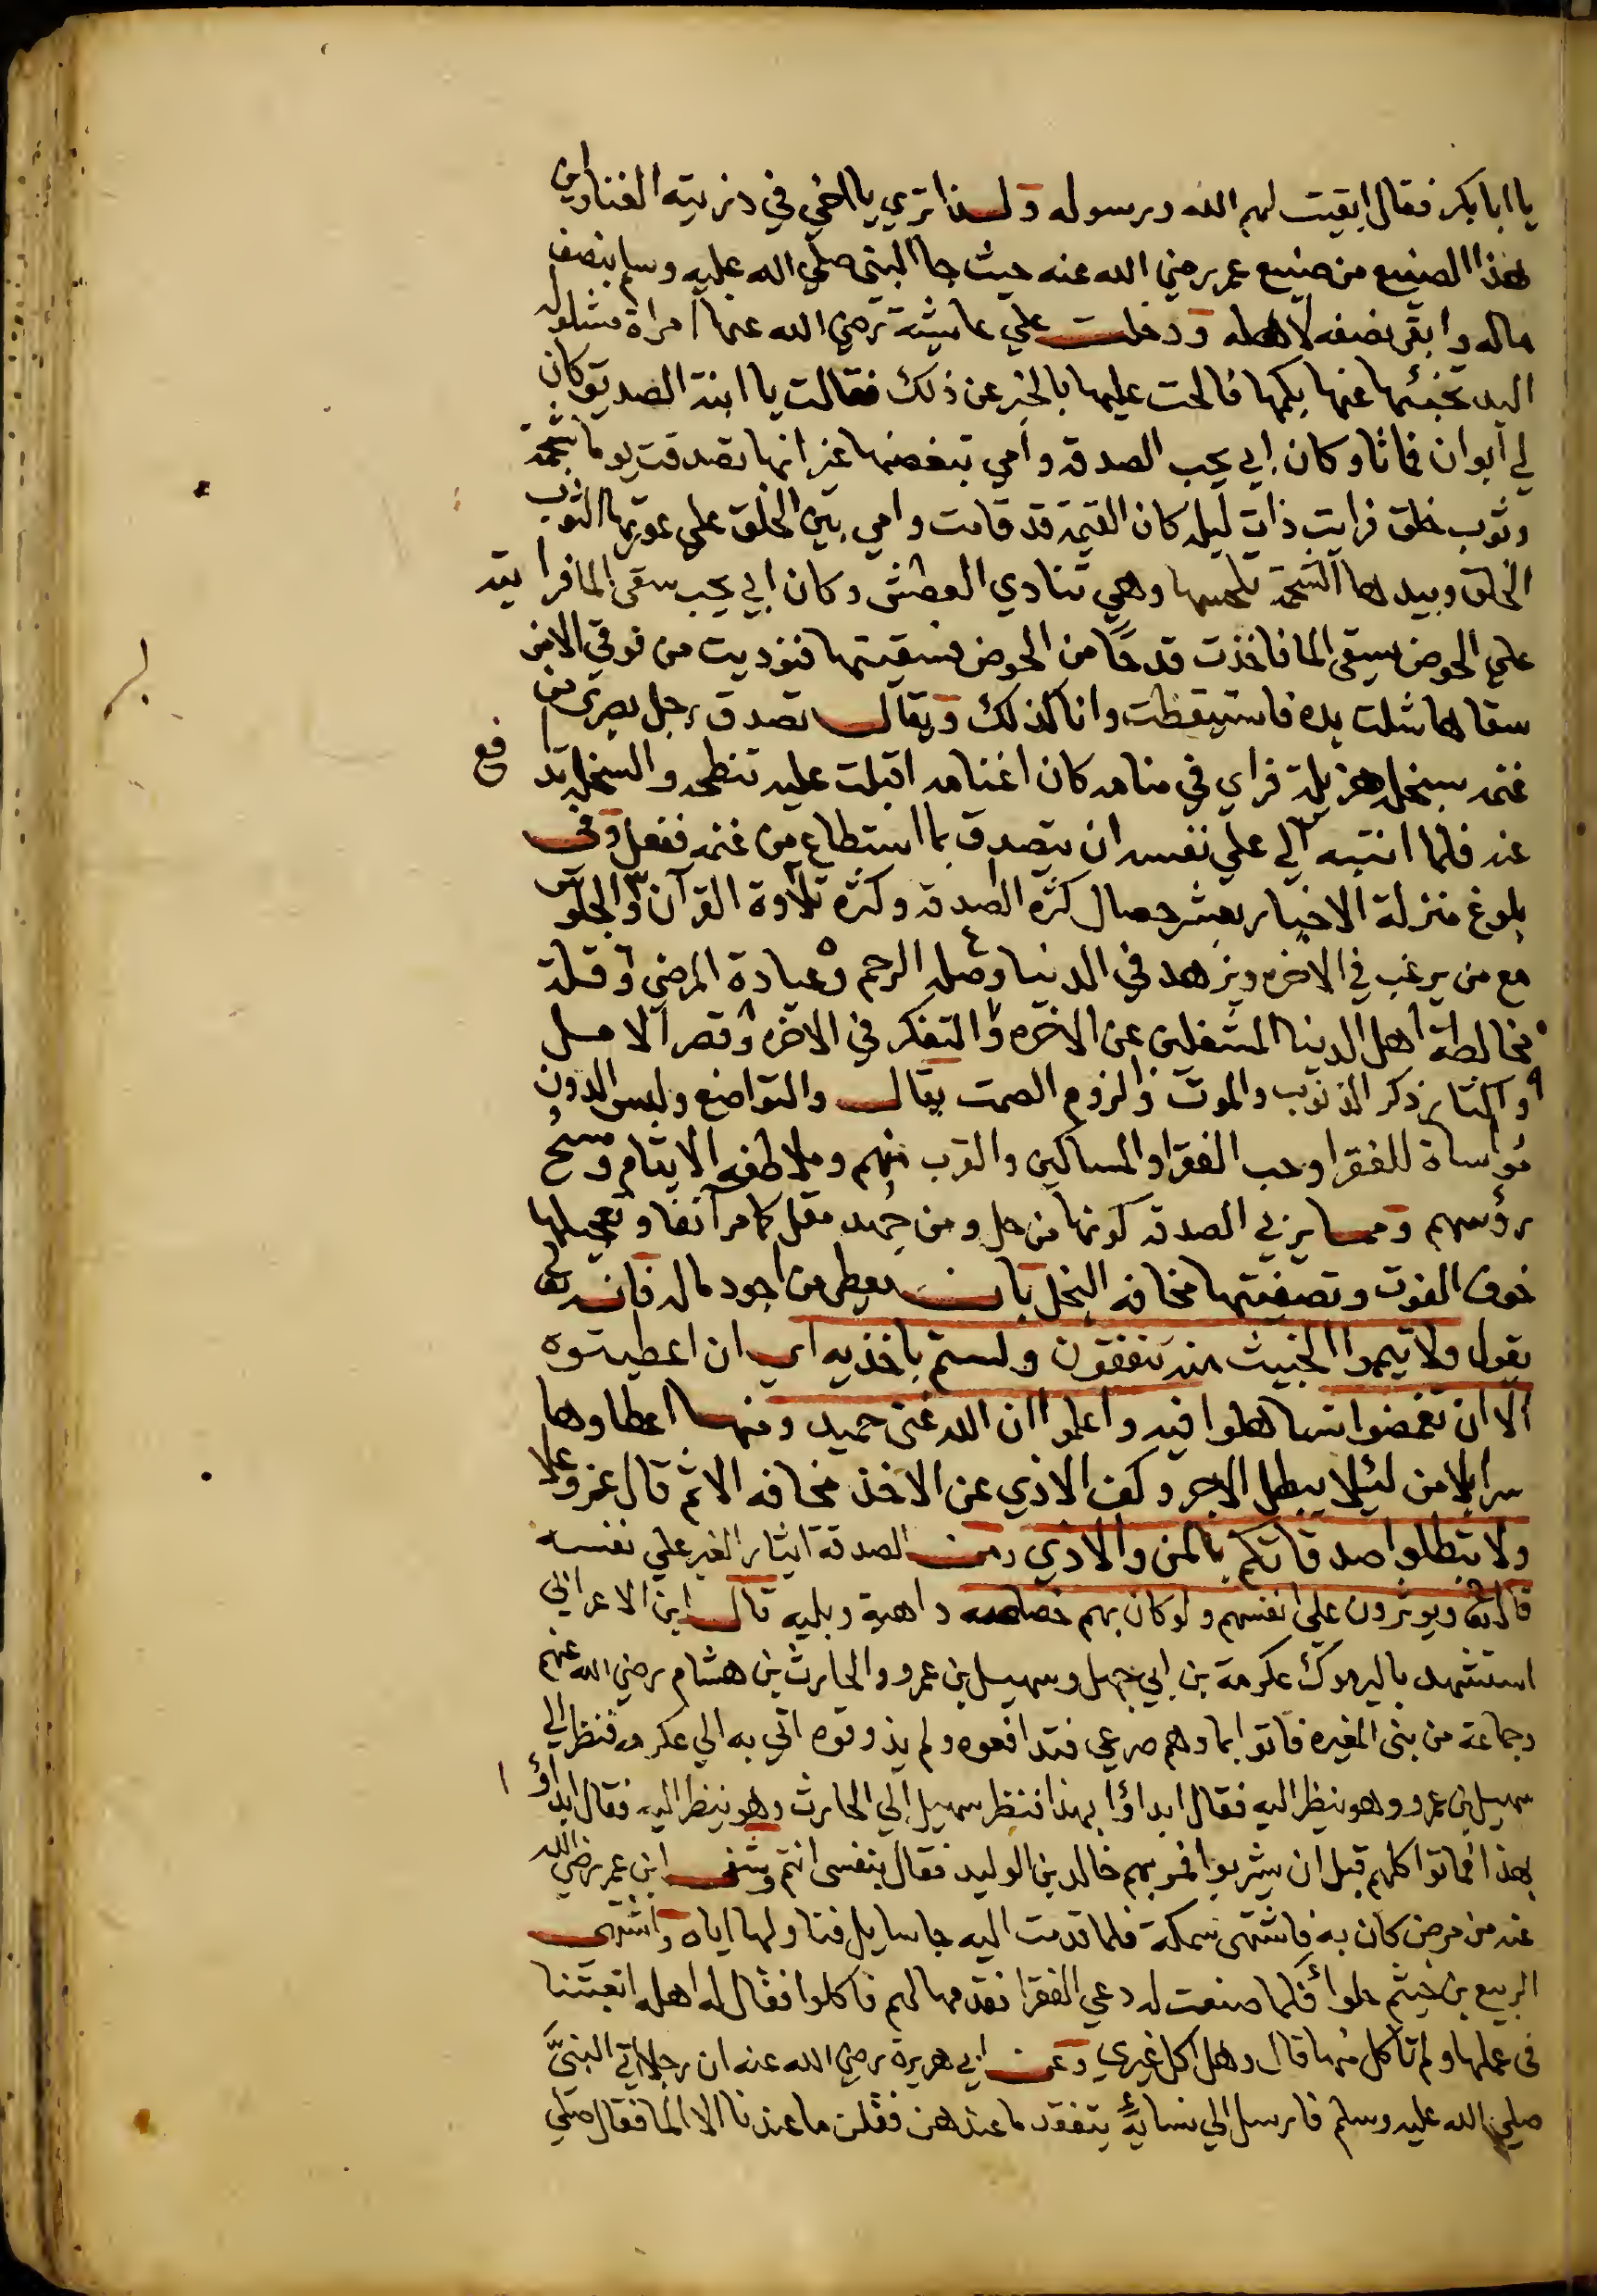 يا ابا بكر فقال ابقيت لهم الله ورسوله ولـذا تري يا اخي في درتيه الغنا واين
هذا الصنيع من صنيع عمر رضي الله عنه حيث جا النبي صلي الله عليه وسلم بنصف
ماله وابقي نصفه لاهله ودخلت علي عايشة رضي الله عنها امراة مشلوله
اليد تخبئها عنها بكمها فالحت عليها بالخبر عن ذلك فقالت يا ابنة الصديق كان
لي ابوان فماتا وكان ابي يحب الصدقه وامي تبغضها غير انها تصدقت يوما بشحمة
وثوب خلق فرايت ذات ليله كان القيمة قد قامت وامي بين الخلق علي عورتها الثوب
الخلق وبيدها الشحمة تلحسها وهي تنادي العطش وكان ابي يحب سقي الما فرايته
علي الحوض يسقي الما فاخذت قدحًا من الحوض فسقيتها فنوديت من فوقي الا من
سقاها شلت يده فاستيقظت وانا كذلك ويقال تصدق رجل بصري من
غنمه بسخله هزيلة فراي في منامه كان اغنامه اقبلت عليه تنطحه والسخله تدا فع
عنه فلما انتبه الي علي نفسه ان يتصدق بما استطاع من غنمه ففعل وفي
بلوغ منزلة الاخيار بعشر خصال كثرة الصدقه وكثرة تلاوة القرآن ٣ والجلوس
مع من يرغب في الاخره ويزهد في الدنيا ٤ وصله الرحم ٥ وعيادة المرضي ٦ وقلة
مخالطة اهل الدنيا المشتغلين عن الاخره ٧ والتفكر في الاخره ٨ وقصر الامل
٩ واكثار ذكر الذنوب والموت ولزوم الصمت يقال والتواضع ولبس الدون
مواساة للفقرا وحب الفقرا والمساكين والقرب منهم وملاطفه الايتام ومسح
رؤسهم ومما يزيي الصدقه كونها من حل ومن جُهد مقل كما مر آنفا وتعجيلها
خوف الفوت وتصفيتها مخافه البخل بان يعطي من اجود ماله فانه تعالي
يقول ولا تيمموا الخبيث منه تنفقون ولستم باخذيه اي ان اعطيتوه
الا ان تغمضوا تتساهلوا فيه واعلموا ان الله غني حميد ومنها اعطاوها
سرا بلا من لئيلا يبطل الاجر وكف الاذي عن الاخذ مخافه الاثم قال عز وعلا
ولا تبطلوا صدقاتكم بالمن والاذي ومن الصدقة ايثار الغير علي نفسه
قال تعا ويوثرون علي انفسهم ولو كان بهم خصاصه داهية وبليه قال ابن الاعرابي
استشهد باليرموك عكرمة بن ابي جهل وسهيل بن عمرو والحارث بن هشام رضي الله عنهم
وجماعة من بني المغيره فاتوا بما وهم صرعي فتدافعوه ولم يذوقوه اتي به الي عكرمه فنظر الي
سهيل بن عمرو وهو ينظر اليه فقال ابداؤا بهذا فنظر سهيل الي الحارث وهو ينظر اليه فقال ابداؤ ا
بهذا فماتوا كلهم قبل ان يشربوا فمر بهم خالد بن الوليد فقال بنفسي انتم وشفي ابن عمر رضي الله
عنه من مرض كان به فاشتهي سمكة فلما قدمت اليه جا سايل فناولها اياه واشتهي
الربيع بن خيثم حلوا فلما صنعت له دعي الفقرا فقدمها لهم فاكلوا فقال له اهله اتعبتنا
في عملها ولم تاكل منها قال وهل اكل غيري وعن ابي هريرة رضي الله عنه ان رجلا اتي النبيَّ
صلي الله عليه وسلم فارسل الي نسايه يتفقد ما عندهن فقلن ما عندنا الا الما فقال صلي